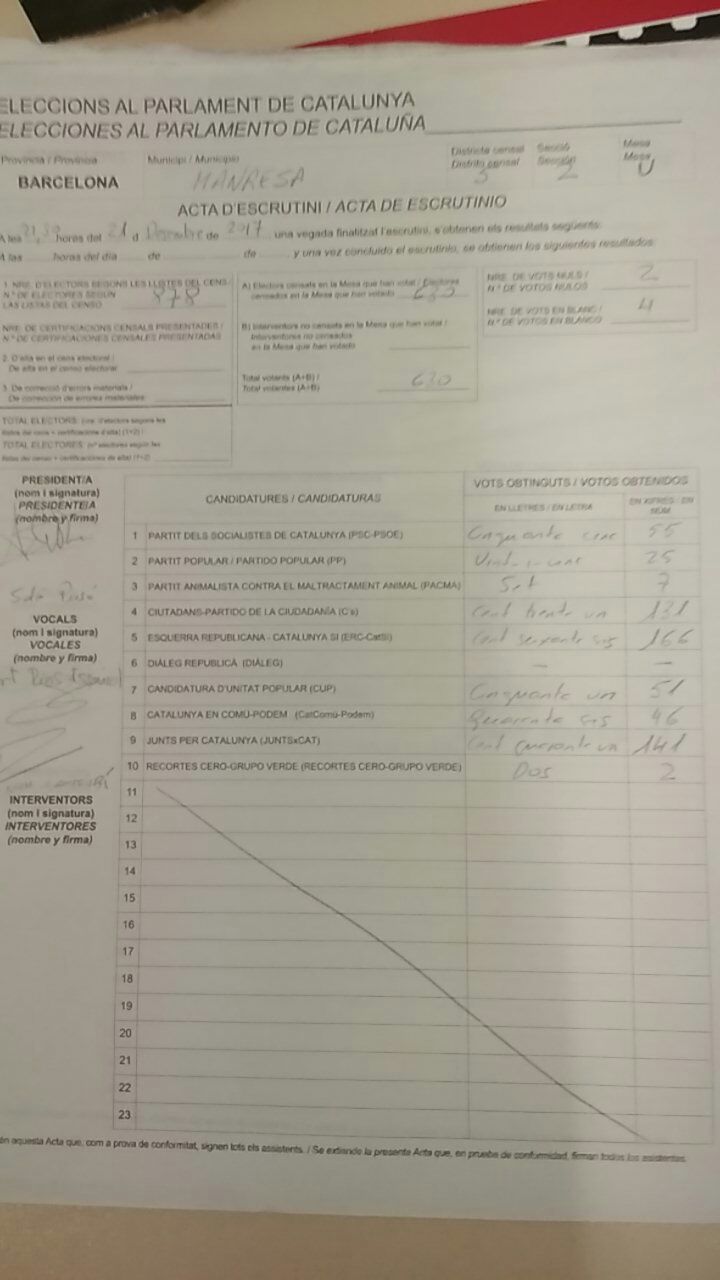 ELECCIONS AL PARLAMENT DE CATALUNYA
ELECCIONES AL PARLAMENTO DE CATALUÑA
Província / Provincia
Municipi / Municipio
Districte censal
Distrito censal
Secció
Sección
Mesa
Mesa
BARCELONA
MANRESA
2
U
ACTA D'ESCRUTINI / ACTA DE ESCRUTINIO
A les hores del 21 d Desembre de 2017, una vegada finalitzat l'escrutini, s'obtenen els resultats següents:
A las horas del día de de y una vez concluido el escrutinio, se obtienen los siguientes resultados:
1. NRE. D'ELECTORS SEGONS LES LLISTES DEL CENS /
N.º DE ELECTORES SEGÚN
LAS LISTAS DEL CENSO
878
NRE. DE CERTIFICACIONS CENSALS PRESENTADES /
N.º DE CERTIFICACIONES CENSALES PRESENTADAS
2. D'alta en el cens electoral /
De alta en el censo electoral
3. De correcció d'errors materials /
De corrección de errores materiales
TOTAL ELECTORS:
TOTAL ELECTORES:
A) Electors censats en la Mesa que han votat / Electores
censados en la Mesa que han votado
B) Interventors no censats en la Mesa que han votat /
Interventores no censados
en la Mesa que han votado
Total votants (A+B) /
Total votantes (A+B)
630
NRE. DE VOTS NULS /
N.º DE VOTOS NULOS
2
NRE. DE VOTS EN BLANC /
N.º DE VOTOS EN BLANCO
4
PRESIDENT/A
(nom i signatura)
PRESIDENTE/A
(nombre y firma)
VOCALS
(nom i signatura)
VOCALES
(nombre y firma)
INTERVENTORS
(nom i signatura)
INTERVENTORES
(nombre y firma)
CANDIDATURES / CANDIDATURAS
VOTS OBTINGUTS / VOTOS OBTENIDOS
EN LLETRES / EN LETRA
EN XIFRES / EN NÚM
1 PARTIT DELS SOCIALISTES DE CATALUNYA (PSC-PSOE) 55
2 PARTIT POPULAR / PARTIDO POPULAR (PP) 25
3 PARTIT ANIMALISTA CONTRA EL MALTRACTAMENT ANIMAL (PACMA) Set 7
4 CIUTADANS-PARTIDO DE LA CIUDADANÍA (C's) Cent trenta un 131
5 ESQUERRA REPUBLICANA - CATALUNYA SÍ (ERC-CatSí) 166
6 DIÀLEG REPUBLICÀ (DIÀLEG) — —
7 CANDIDATURA D'UNITAT POPULAR (CUP) 51
8 CATALUNYA EN COMÚ-PODEM (CatComú-Podem) 46
9 JUNTS PER CATALUNYA (JUNTSxCAT) 141
10 RECORTES CERO-GRUPO VERDE (RECORTES CERO-GRUPO VERDE) Dos 2
11
12
13
14
15
16
17
18
19
20
21
22
23
én aquesta Acta que, com a prova de conformitat, signen tots els assistents. / Se extiende la presente Acta que, en prueba de conformidad, firman todos los asistentes.